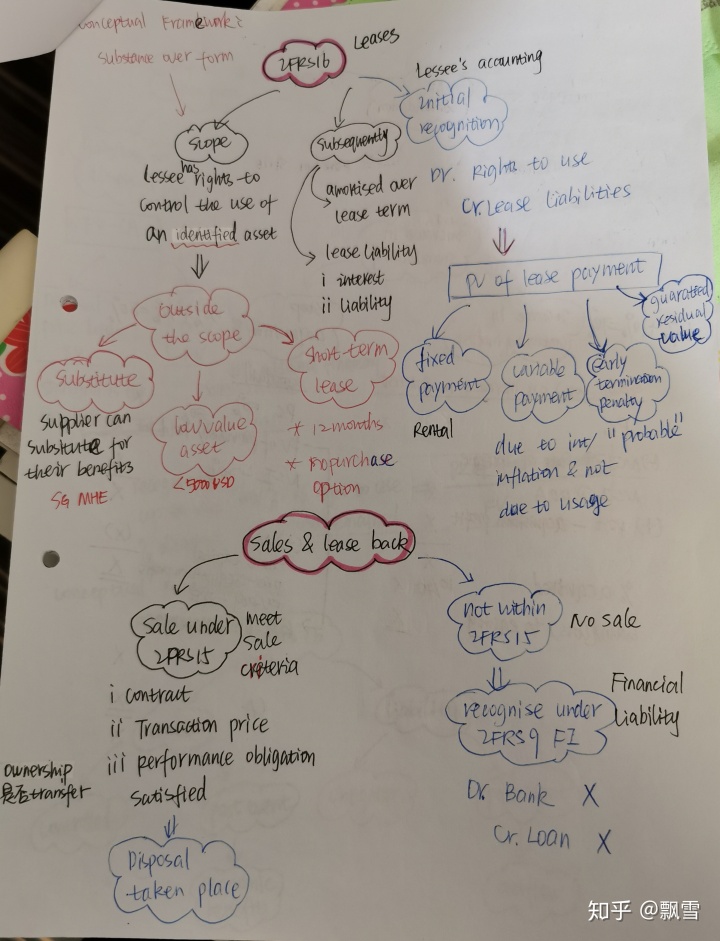 Conceptual Framework:
substance over form
IFRS16
Leases
Lessee's accounting
Scope
Lessee has rights to
control the use of
an identified asset
Outside
the scope
Substitute
supplier can
substitute for
their benefits
SG MHE
low value
asset
<5000 USD
short-term
lease
* 12 months
* no purchase
option
Subsequently
amortised over
lease term
lease liability
i interest
ii liability
Initial
recognition
Dr. Rights to use
Cr. Lease Liabilities
PV of lease payment
fixed
payment
Rental
variable
payment
due to int/
inflation & not
due to usage
early
termination
penalty
"probable"
guaranteed
residual
value
Sales & lease back
Sale under
IFRS15
meet
sale
criteria
i contract
ii Transaction price
iii performance obligation
satisfied
ownership
是否transfer
Disposal
taken place
not within
IFRS15
No sale
recognise under
IFRS9 FI
Financial
Liability
Dr. Bank X
Cr. Loan X
知乎 @飘雪